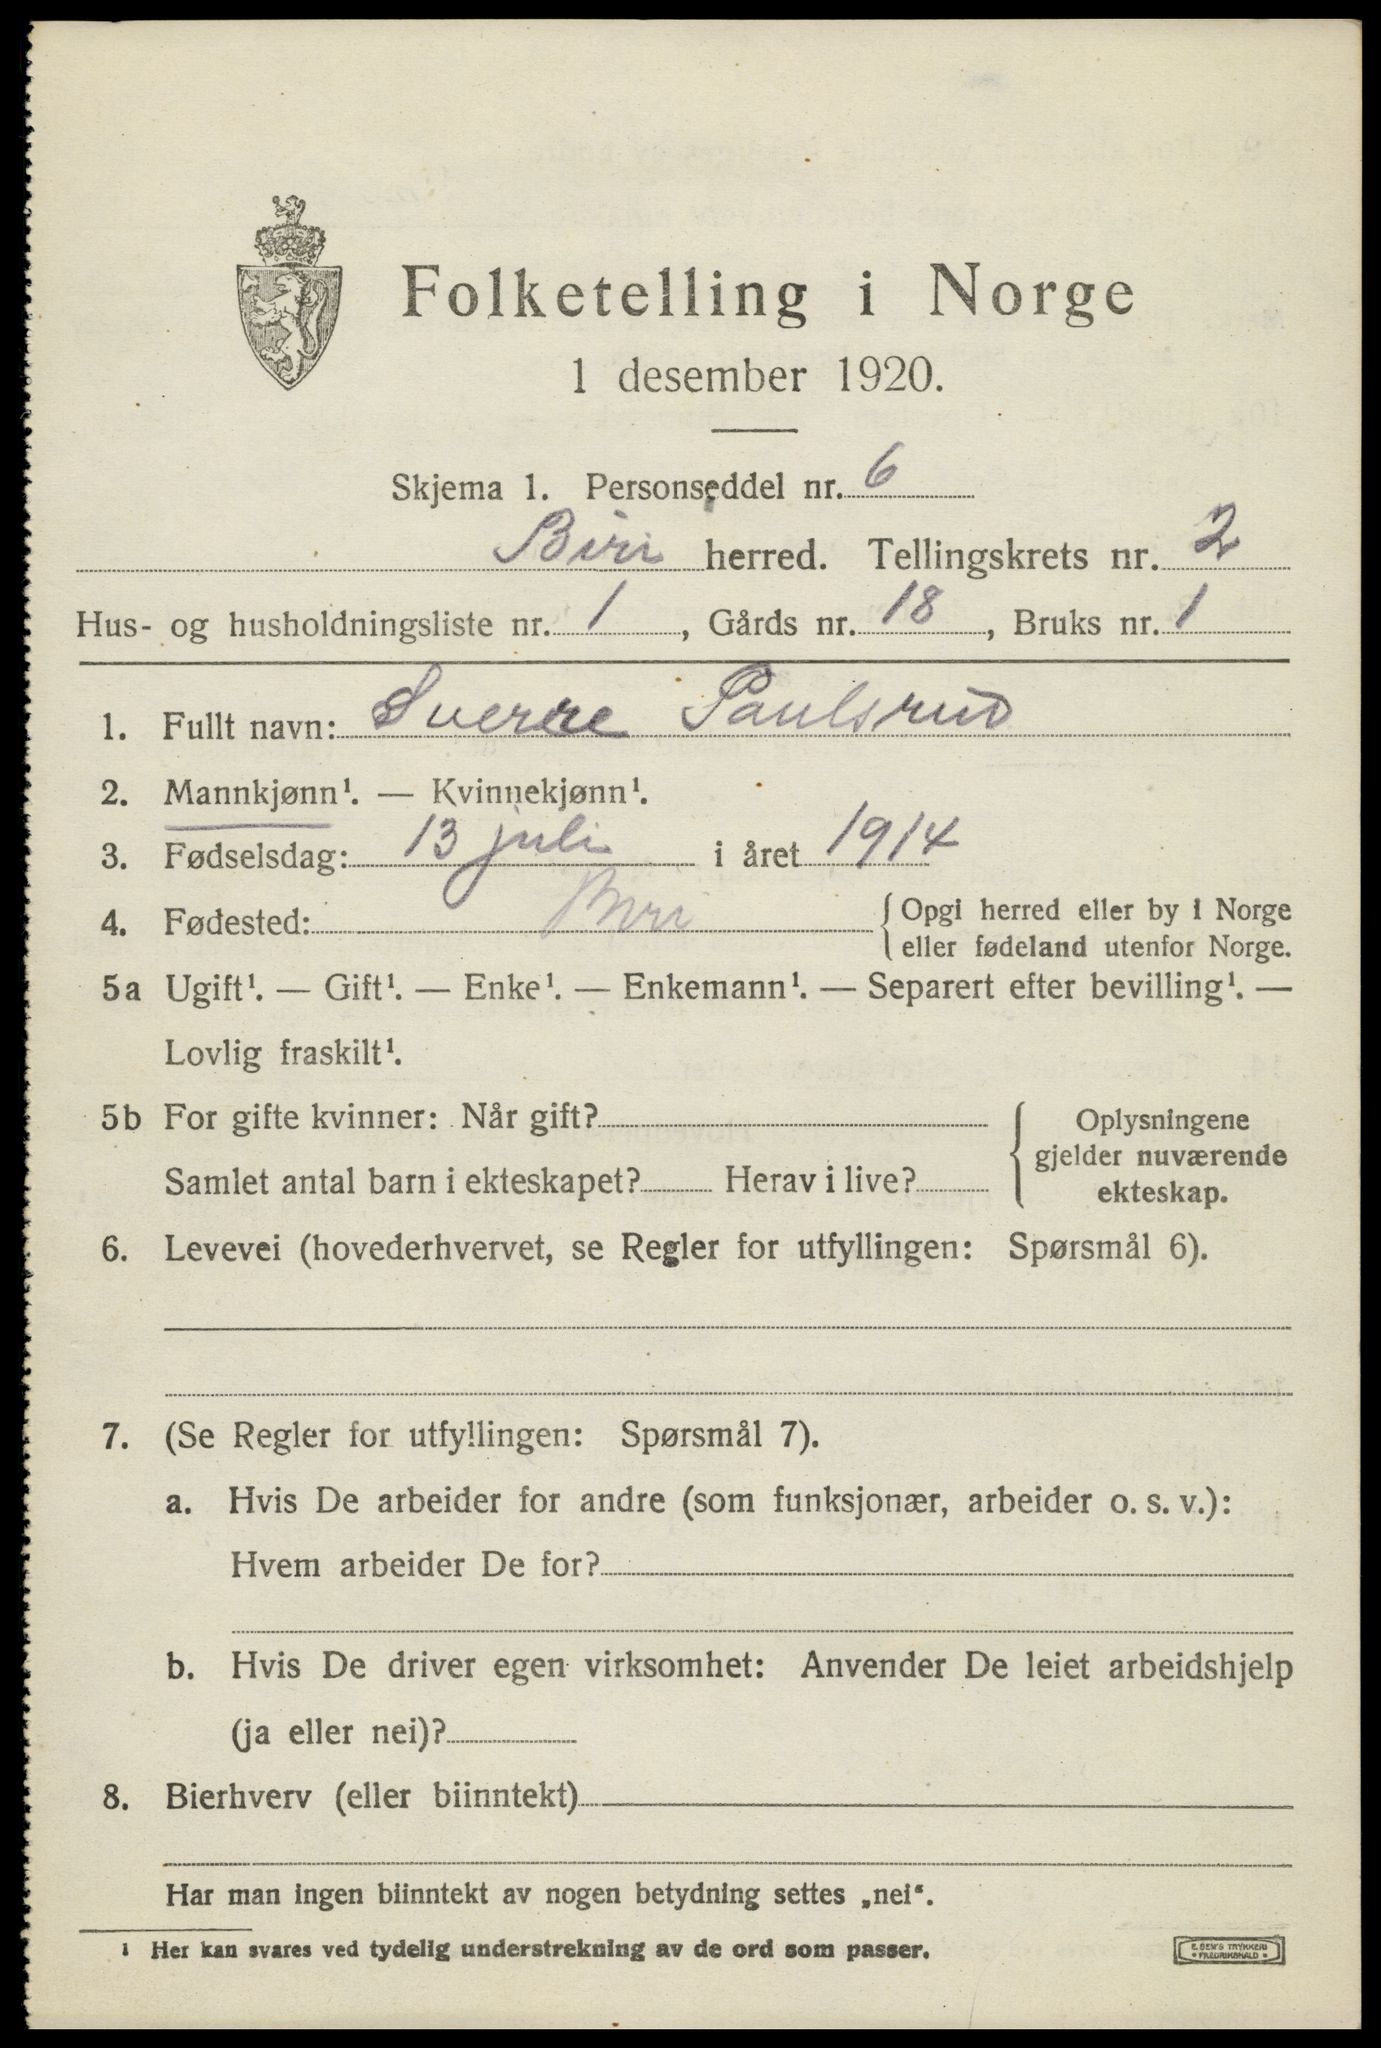 Folketelling i Norge
1 desember 1920.
Skjema 1. Personseddel nr. 6
Biri herred. Tellingskrets nr. 2
Hus- og husholdningsliste nr. 1, Gårds nr. 18, Bruks nr. 1
1. Fullt navn: Sverre Paulsrud
2. Mannkjønn¹. — Kvinnekjønn¹.
3. Fødselsdag: 13 juli i året 1914
4. Fødested: Biri { Opgi herred eller by i Norge
eller fødeland utenfor Norge.
5a Ugift¹. — Gift¹. — Enke¹. — Enkemann¹. — Separert efter bevilling¹. —
Lovlig fraskilt¹.
5b For gifte kvinner: Når gift?
Samlet antal barn i ekteskapet? Herav i live?
Oplysningene
gjelder nuværende
ekteskap.
6. Levevei (hovederhvervet, se Regler for utfyllingen: Spørsmål 6).
7. (Se Regler for utfyllingen: Spørsmål 7).
a. Hvis De arbeider for andre (som funksjonær, arbeider o. s. v.):
Hvem arbeider De for?
b. Hvis De driver egen virksomhet: Anvender De leiet arbeidshjelp
(ja eller nei)?
8. Bierhverv (eller biinntekt)
Har man ingen biinntekt av nogen betydning settes „nei“.
¹ Her kan svares ved tydelig understrekning av de ord som passer.
E. SEM'S TRYKKERI
FREDRIKSHALD